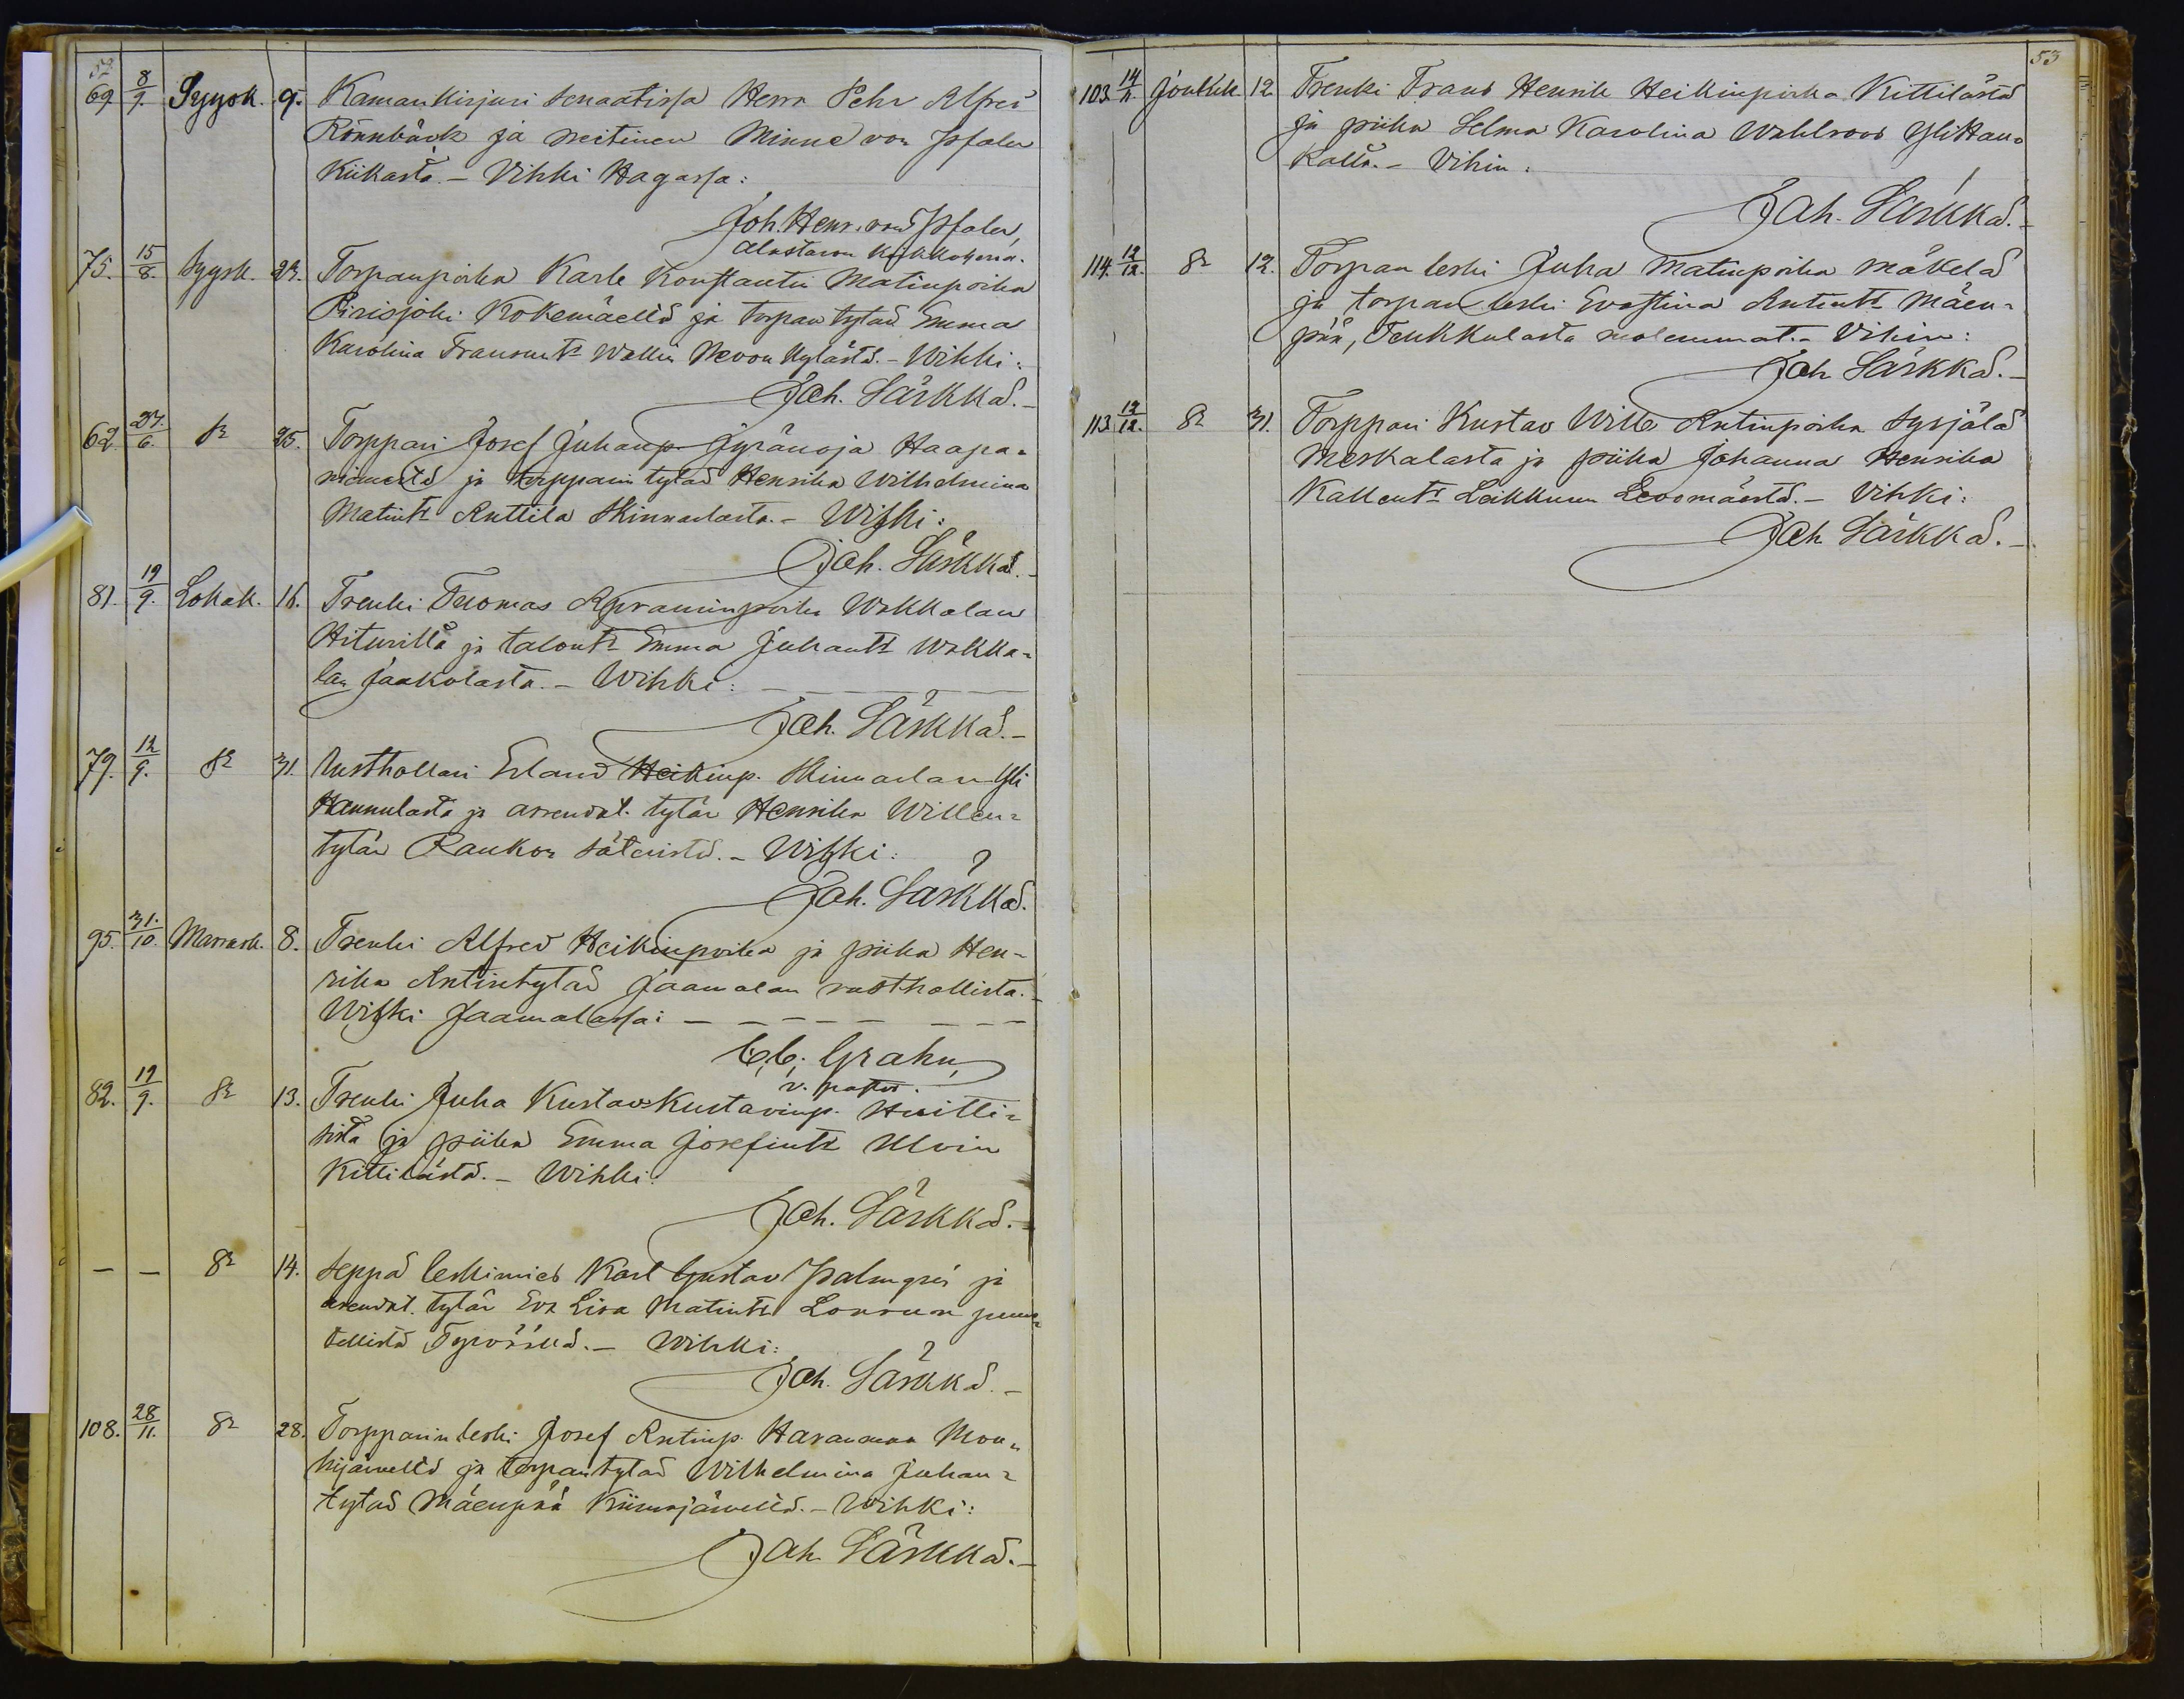 52
69. 8/7. Syysk. 9. Kamarikirjuri senaatissa Herra Pehr Alfred
Rönnbäck ja neitinen Minne von Pfaler
Kiikasta. – Vihki Hagassa:
Joh. Henr. von Pfaler,
Alastaron Kirkkoherra.
75. 15/8. Syysk. 23. Torpanpoika Karle Konstantin Matinpoika
Piirisjoki Kokemäeltä ja torpan tytär Emma
Karolina Fransintr Wallin Nevon kylästä. – Wihki:
Joh. Särkkä. –
62. 27/6. Sr 25. Torppari Josef Juhanp. Jyränoja Haapa-
niemestä ja torpparin tytär Henrika Wilhelmina
Matintr Anttila Skinnarlasta. – Wihki:
Joh. Särkkä. –
81. 19/9. Lokak. 16. Trenki Tuomas Apraminpoika Wakkalan
Hiturilta ja talontr Emma Juhantr Wakka-
lan Jaakolasta. – Wihki:
Joh. Särkkä. –
79. 12/9. Sr 31. Rusthollari Erland Heikinp. Skinnarlan Yli
Hannulasta ja arrendat. tytär Henrika Willen-
tytär Raukon säteristä. – Wihki:
Joh. Särkkä.
95. 31./10. Marrask. 8. Trenki Alfred Heikinpoika ja piika Hen-
rika Antintytär Jaamalan rusthollista. –
Wihki Jaamalassa:
C. C. Grahn,
v. pastor.
82. 19/9. Sr 13. Trenki Juha Kustav Kustavinp. Huitti-
sista ja piika Emma Josefintr Ulvin
Kittilästä. – Wihki:
Joh. Särkkä. –
– – Sr 14. Seppä leskimies Karl Gustav Palmgren ja
arendat. tytär Eva Lisa Matintr
Tyrväällä. – Wihki:
Joh. Särkkä. –
108. 28/11. Sr 28. Torpparin leski Josef Antinp. Mou-
hijärveltä ja torpan tytär Wilhelmina Juhan-
tytär Mäenpää Kiimajärveltä. – Wihki:
Joh. Särkkä. –
53
103. 14/11. Joulukk. 12. Trenki Frans Henrik Heikinpoika Kittilästä
ja piika Selma Karolina Wahlroos YliHau-
kalta. – Vihin:
Joh. Särkkä. –
114. 12/12. Sr 12. Torpan leski Juha Matinpoika Mäkelä
ja torpan leski Evastina Antintr Mäen-
pää, Teukkulasta molemmat. – Vihin:
Joh Särkkä. –
113. 12/12. Sr 31. Torppari Kustav Wille Antinpoika Syrjälä
Meskalasta ja piika Johanna Henrika
Kallentr Leikkuun Leovomäestä. – Vihki:
Joh Särkkä. –